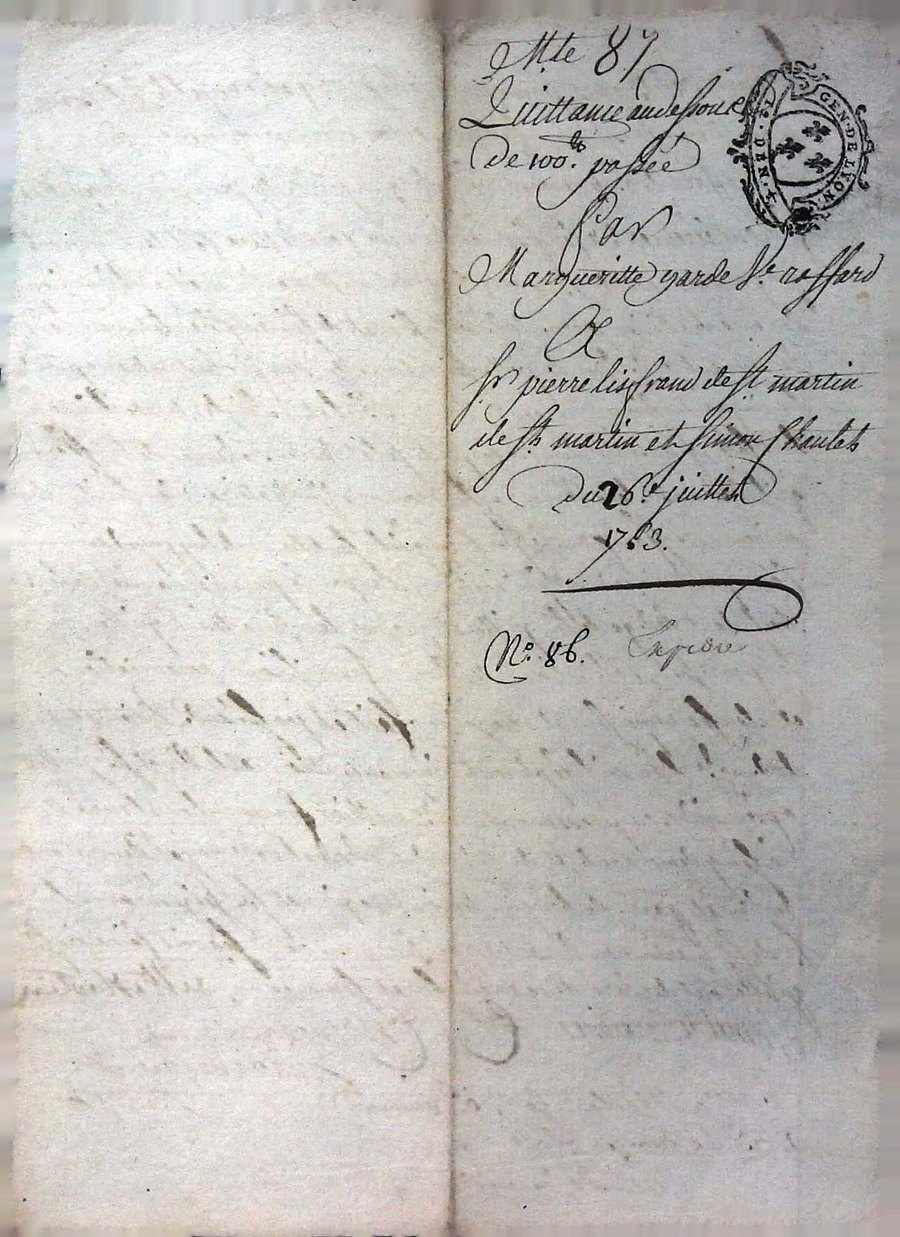 Mte 87
Quittance au dessous
de 100.ll passée
Par
Margueritte garde Ve raffard
A
Sr pierre lisfrand de St martin
de St martin et Simon Chaulet
Du 26e juillet
1753.
No. 86.
GEN · DE LYON
DEN